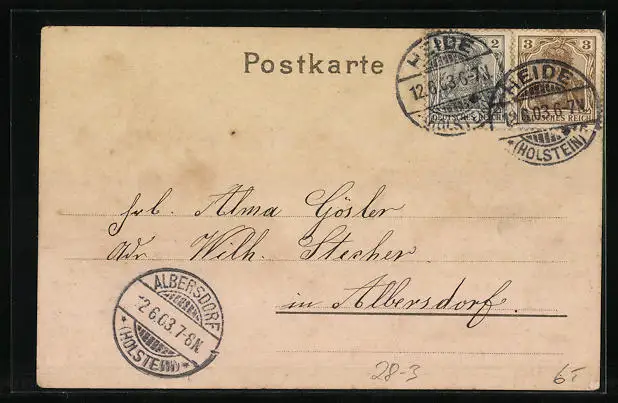 Postkarte
2
3
DEUTSCHES REICH
DEUTSCHES REICH
HEIDE
12.6.03.6-7N
*(HOLSTEIN)
HEIDE
12.6.03.6-7N
*(HOLSTEIN)*
Frl. Alma Gösler
Adr Wilh. Stecher
in Albersdorf.
ALBERSDORF
12.6.03.7-8N
*(HOLSTEIN)*
28-3
6.-